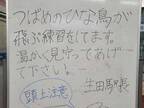 つばめのひな鳥が
飛ぶ練習をしてます。
温かく見守ってあげ
て下さい。
頭上注意
生田駅長